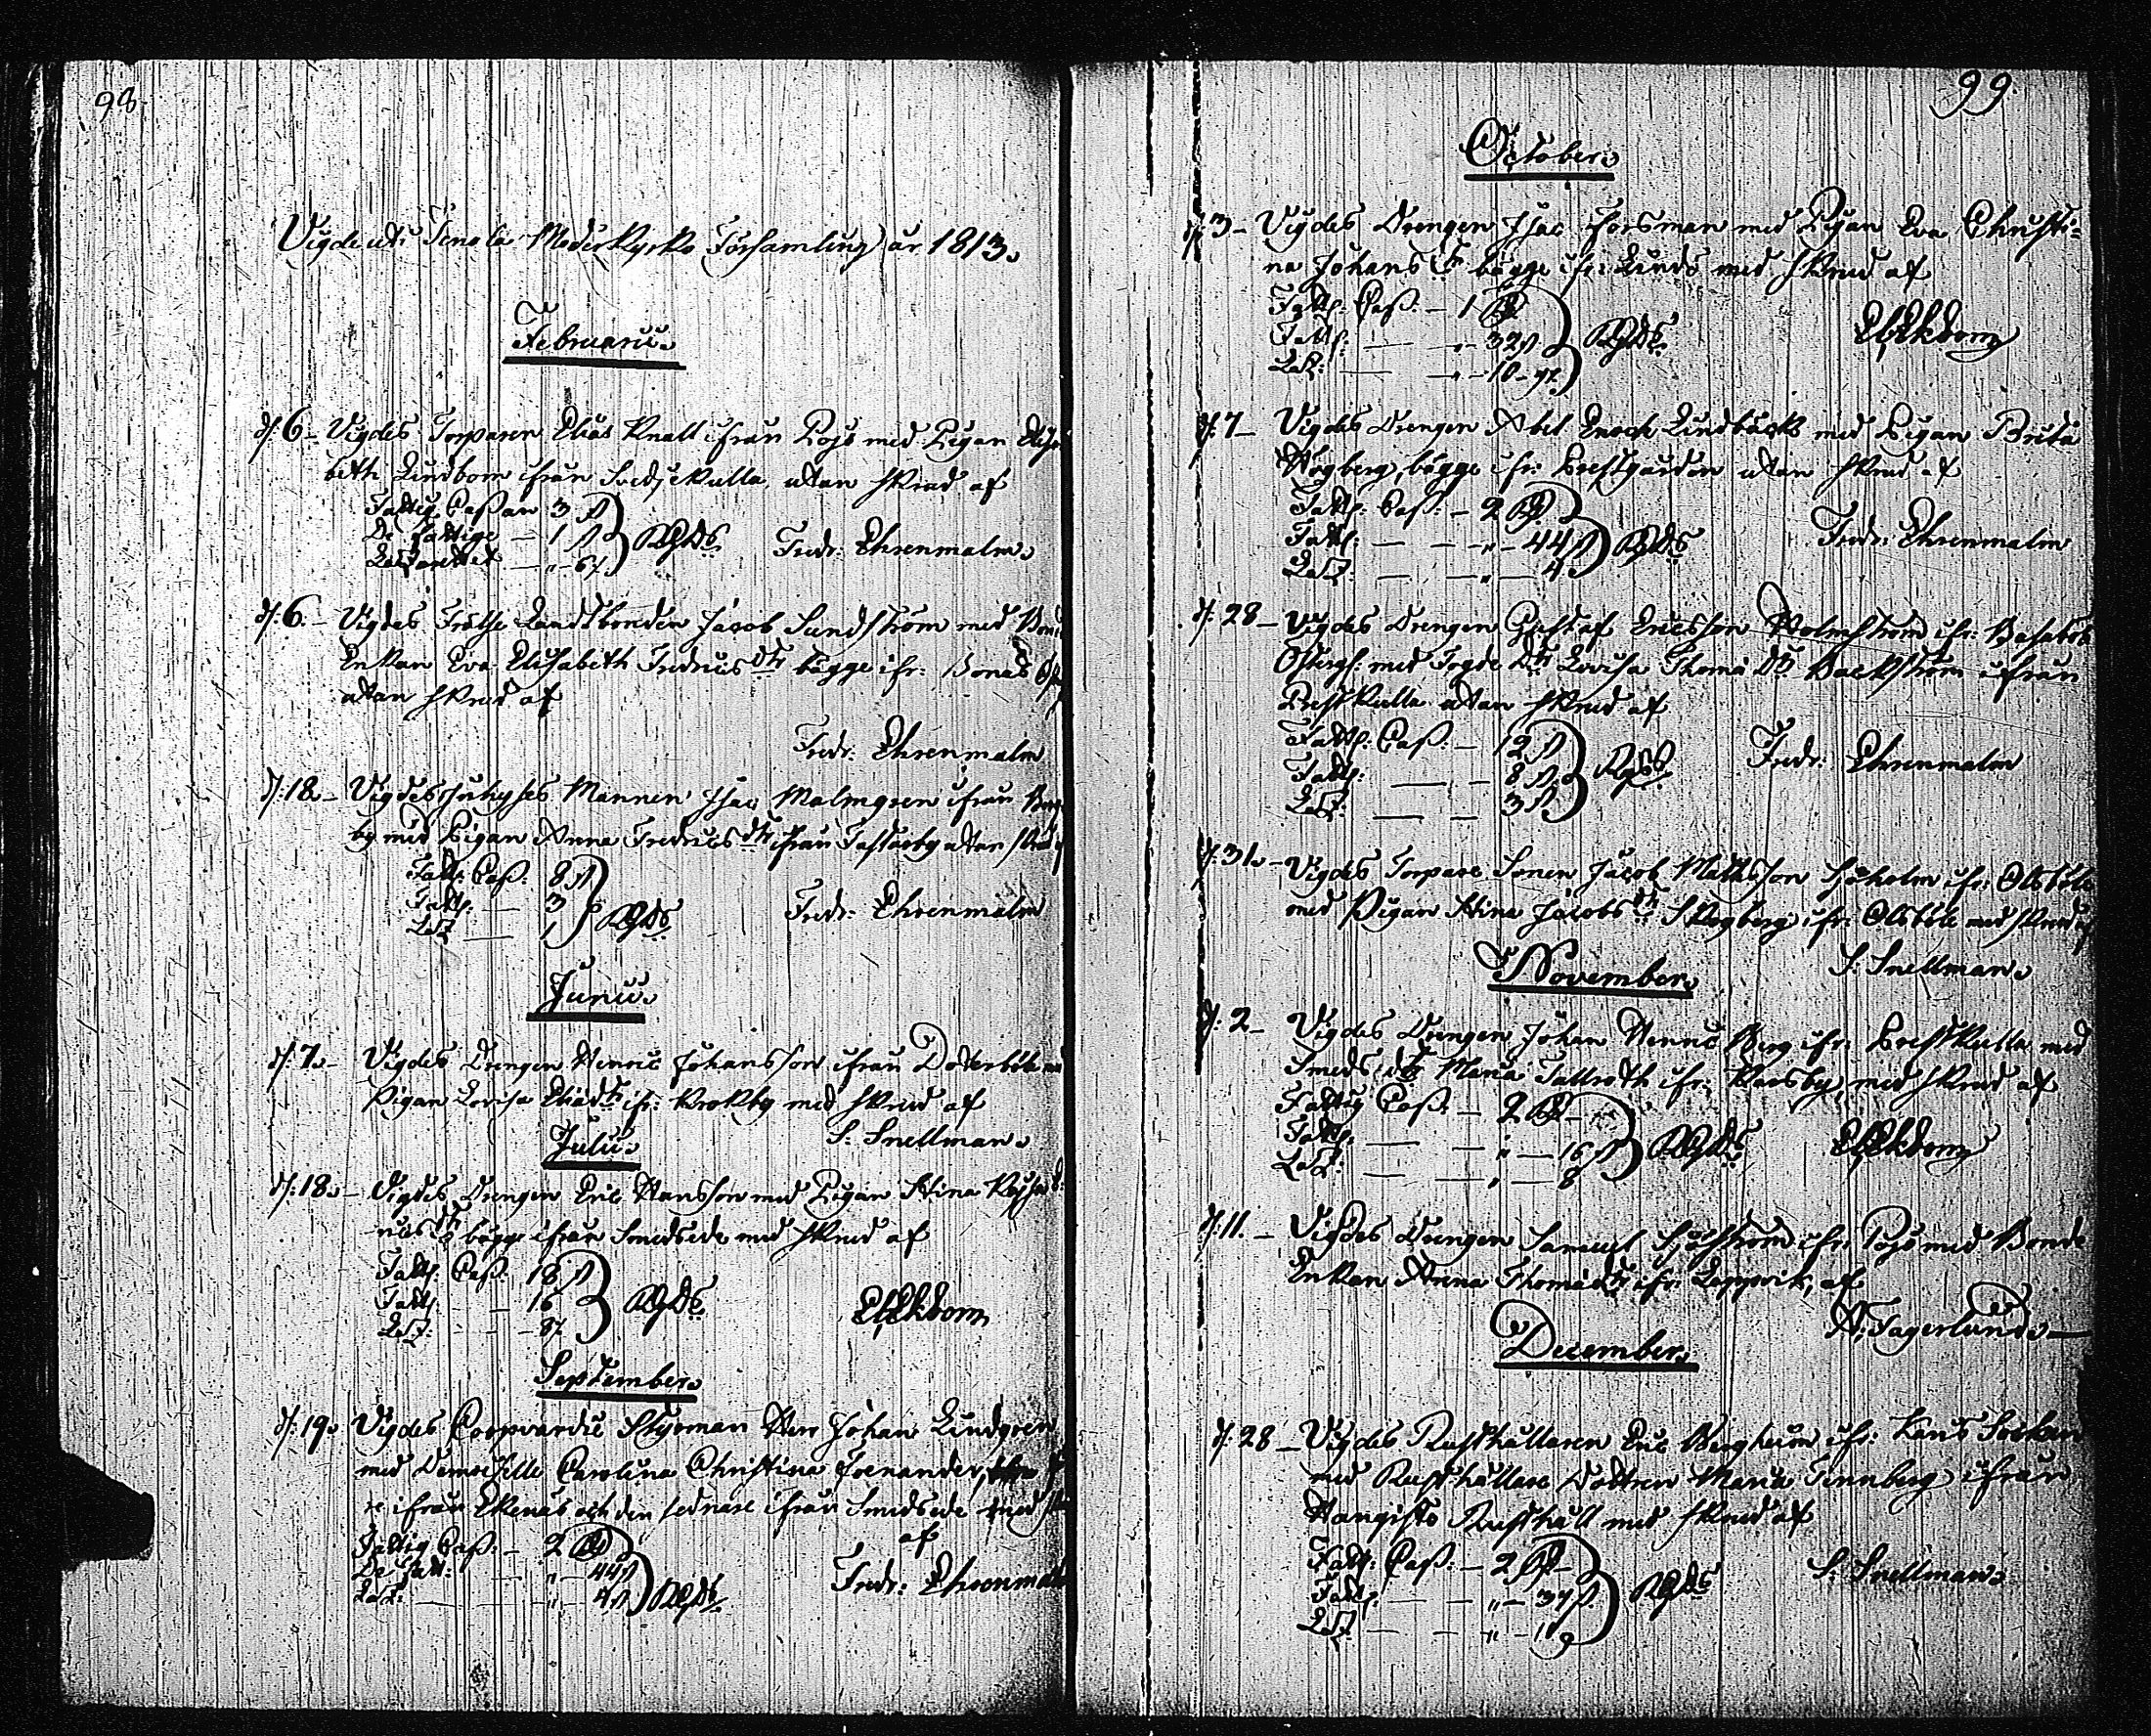 98
Vigde uti Tenala Moderkyrko Församling år 1813.
Februarii.
d: 6 – Vigdes Torparen Elias Knall ifrån Pojo med Pigan Elisa
beth Lindbom ifrån Svedjekulla, utan skrud af
Fattig Cassan 3 ß
De fattige – 1 ß RGds
Lasarettet – „ – 6 Fredr: Ehrenmalm.
d: 6. – Vigdes Frälse Landtbonden Jacob Sundström med Bonde
Enkan Eva Elisabeth Fredricsdtr bägge ifr: Bonäs
utan skrud af
Fredr: Ehrenmalm
d: 18. – Vigdes Inhyses Mannen Isac Malmgren ifrån
by med Pigan Anna Fredricsdtr ifrån Fastarby utan skrud
Fatt: Cass: 8 ß
Fatt: — 3 RGds Fredr: Ehrenmalm
Laz — 1
Junii.
d: 7. – Vigdes Drengen Henric Johansson ifrån Dotterböle med
Pigan Lovisa Eliædtr ifr: Krokby med skrud af
S: Snellman.
Julii.
d: 18. – Vigdes Drengen Eric Hansson med Pigan Stina Kajsa
ricsdtr bägge ifrån Smedsede med skrud af
Fatt: Cass: 18 ß
Fatt: — 16 RGds
Laz: — 8 Ekdom
September.
d: 19. Vigdes Coopvardie Styrman Herr Johan Lindgren
med Demoiselle Carolina Christina Forenander,
re ifrån Ekenäs och den sednare ifrån Smedsede med
af
Fattig Cass: – 2 Rd
De Fatt: — „ – 44 ß RGds Fredr: Ehrenmalm
Laz: — „ – 4 ß
99
October.
d: 3 – Vigdes Drengen Isac Forsman med Pigan Eva Christi=
na Johansdtr bägge ifr: Lindö med skrud af
Fatt: Cass: – 1 Rd
Fatt: — „ – 32 ß RGds Ekdom
Laz: — „ – 10
d: 7 – Vigdes Drengen Abel Enoch Lindbäck med Pigan Brita
Högberg, bägge ifr: Prestgården utan skrud af
Fatt: Cass: – 2 Rd
Fatt: — — „ – 44 ß RGds Fredr: Ehrenmalm
Laz: — — „ — 4
d: 28 – Vigdes Drengen Gustaf Ericsson Holmström ifr:
Österg: med Fogde dtr Lovisa Thomædtr Backström ifrån
Prestkulla utan skrud af
Fatt: Cass: – 12 ß
Fatt: — — 8 ß RGds Fredr: Ehrenmalm
Laz: — — 3 ß
d: 31. – Vigdes Torpare Sonen Jacob Mattsson Sjöholm ifr: Olsböle
med Pigan Stina Jacobsdtr Skogberg ifr: Olsböle med skrud af
S: Snellman.
November.
d: 2 – Vigdes Drengen Johan Henric Berg ifr: Prestkulla med
Smeds dtr Maria Tallroth ifr: Karsby, med skrud af
Fattig Cass: – 2 Rd
Fatt: — — „ — 16 ß RGds Ekdom
Laz: — — „ — 8
d: 11. – Vigdes Drengen Samuel Sjöström ifr: Pojo med Bonde
Enkan Anna Thomædtr ifr: Lappvik, af
A: Fagerlund.
December.
d: 28 – Vigdes Rusthållaren Eric Bergheim ifr: Karis Socken
med Rusthållare Dottren Maria Tennberg ifrån
Hangisto Rusthåll med skrud af
Fatt: Cass: – 2 Rd –
Fatt: — — „ – 37 ß RGds S: Snellman.
Laz — — „ – 1